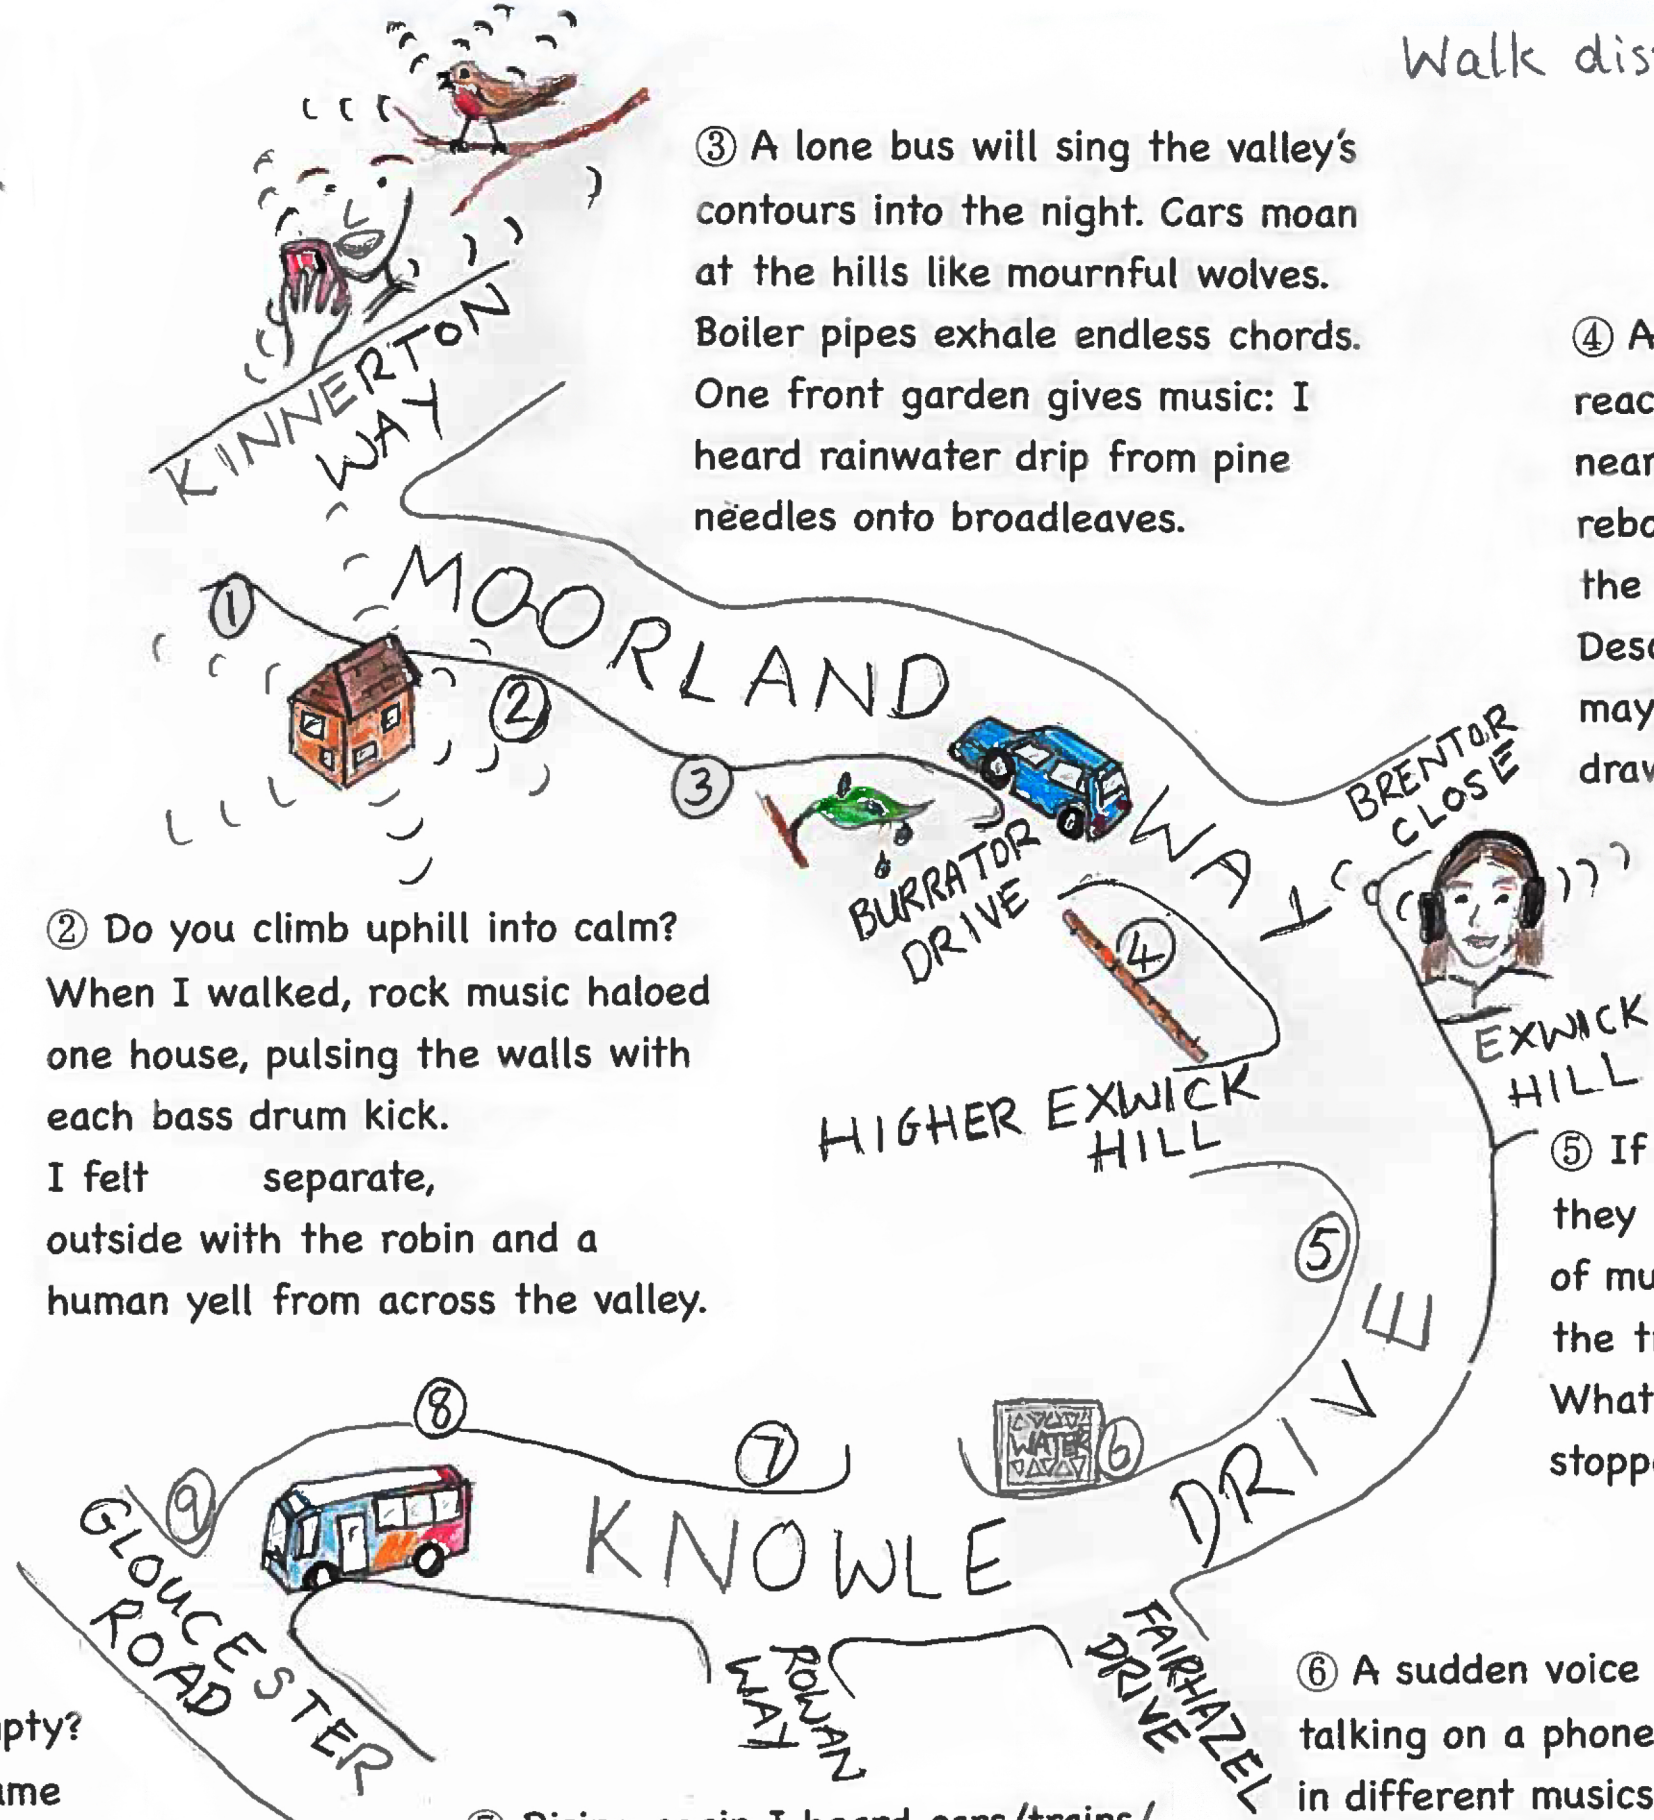 Walk
③ A lone bus will sing the valley's
contours into the night. Cars moan
at the hills like mournful wolves.
Boiler pipes exhale endless chords.
One front garden gives music: I
heard rainwater drip from pine
needles onto broadleaves.
④ A
the
may
KINNERTON
WAY
①
MOORLAND
WAY
②
③
BURRATOR
DRIVE
BRENTOR
CLOSE
④
EXWICK
HILL
HIGHER EXWICK
HILL
② Do you climb uphill into calm?
When I walked, rock music haloed
one house, pulsing the walls with
each bass drum kick.
I felt separate,
outside with the robin and a
human yell from across the valley.
⑤ If
they
of
the
What
⑤
⑥
WATER
⑦
⑧
⑨
KNOWLE
DRIVE
GLOUCESTER
ROAD
ROWAN
WAY
FAIRHAZEL
DRIVE
⑥ A sudden voice
talking on a phone
in different musics